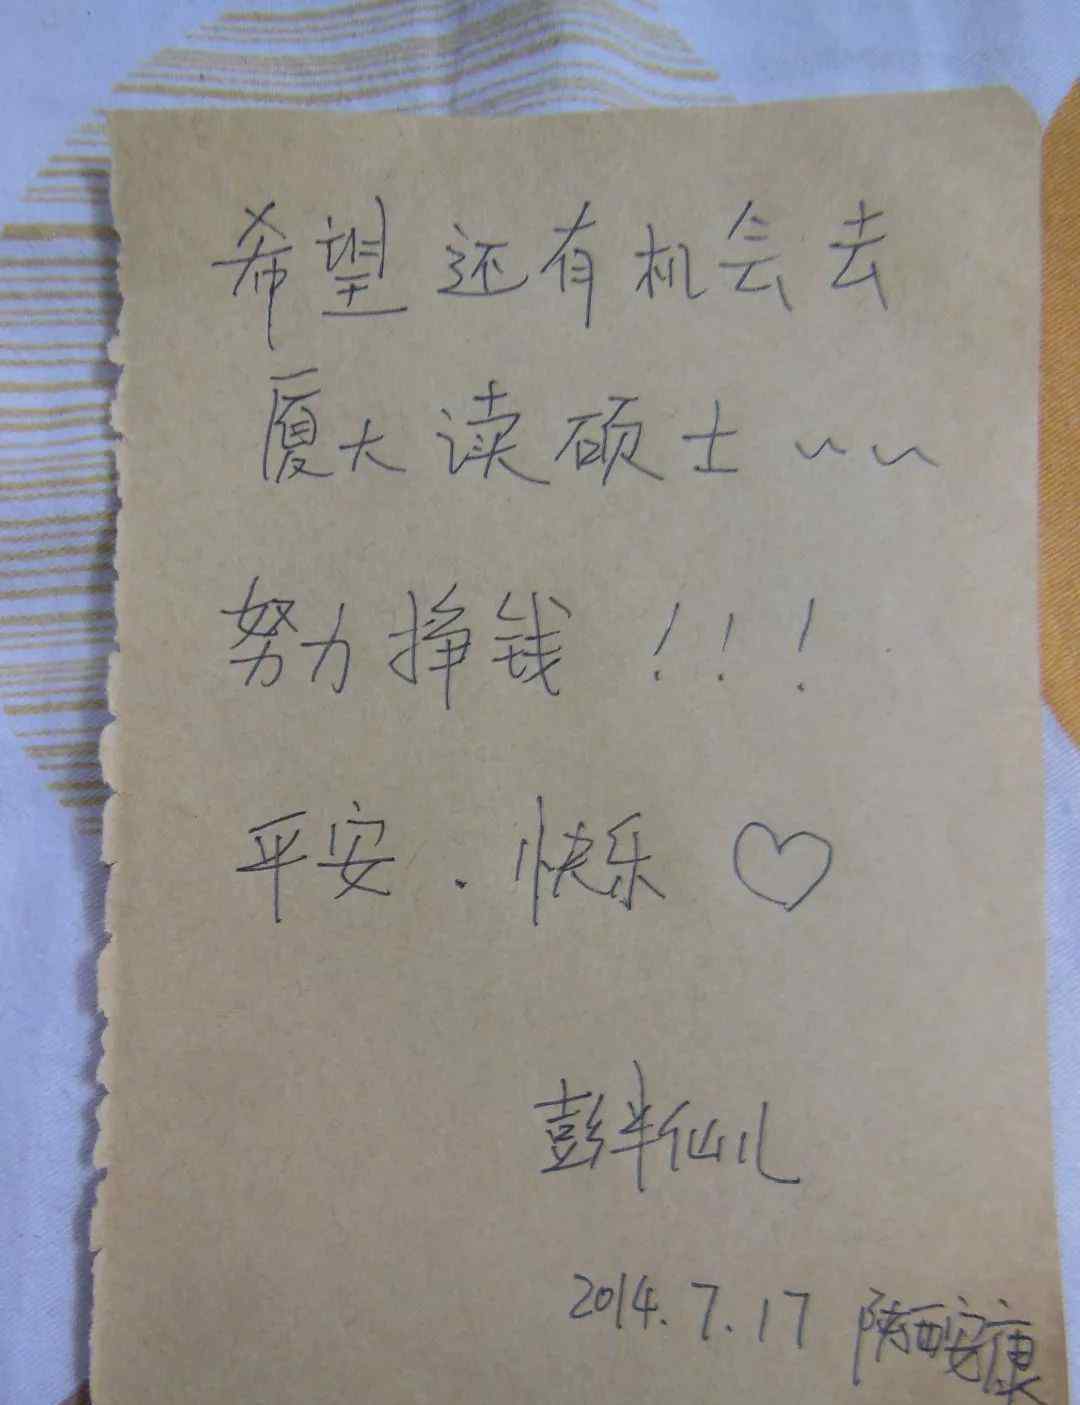 希望还有机会去
厦大读硕士~~
努力挣钱!!!
平安.快乐♡
彭半仙儿
2014.7.17 陕西安康